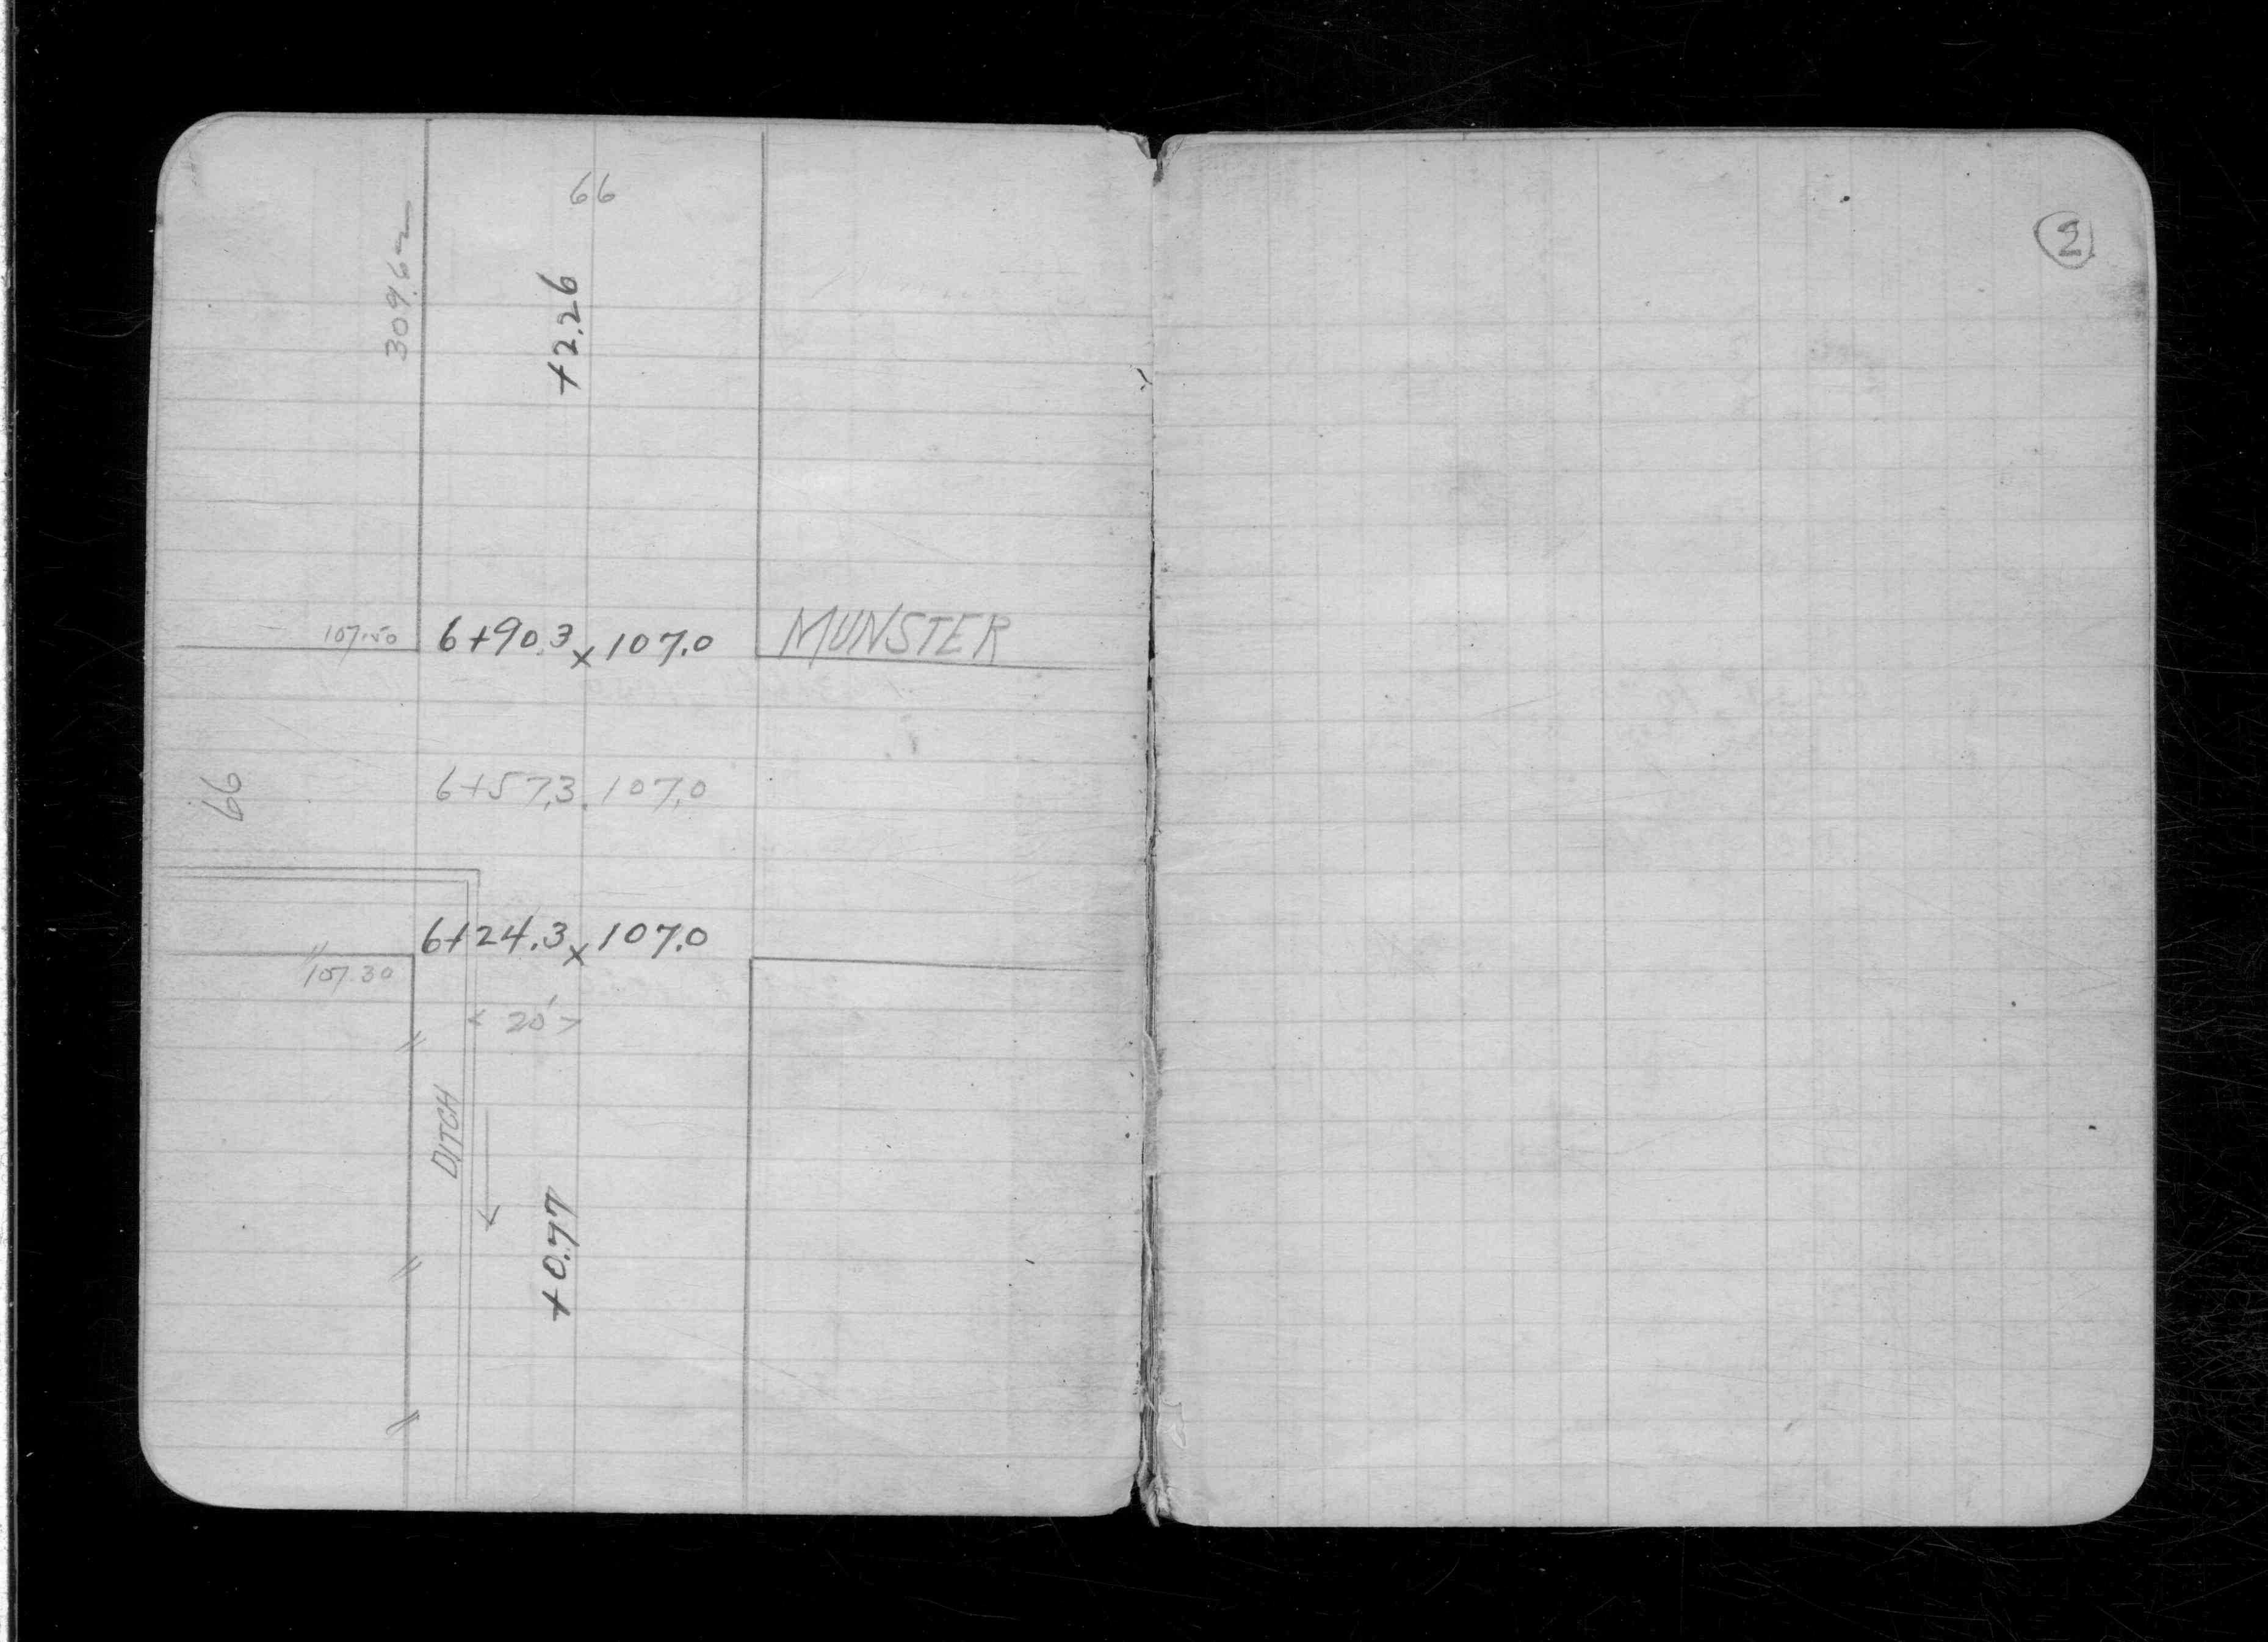 66
309.62
+2.26
107.50 6+90.3 x 107.0 MUNSTER
66
6+57.3 . 107.0
6+24.3 x 107.0
107.30
20'
DITCH
+0.77
2